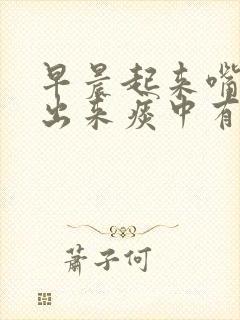 早晨起来嘴
出来痰中有
萧子何